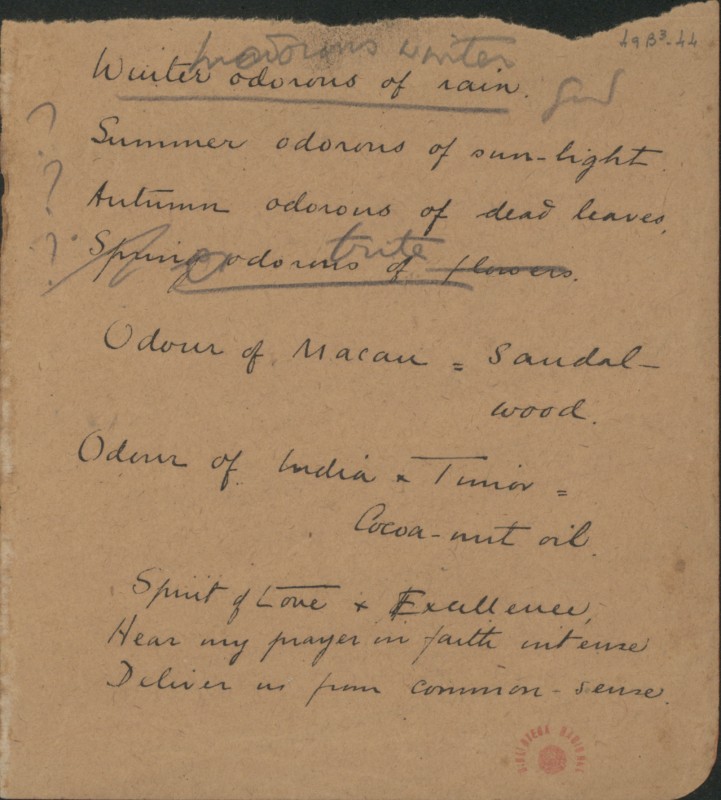 inodorous winter
49B³-44
Winter odorous of rain.
Summer odorous of sun-light.
?
Autumn odorous of dead leaves,
?
trite
Spring odorous of flowers.
?
Odour of Macau = Sandal-
wood.
Odour of India & Timor =
Cocoa-nut oil.
Spirit of Love & Excellence,
Hear my prayer in faith intense
Deliver us from common-sense.
BIBLIOTECA NACIONAL